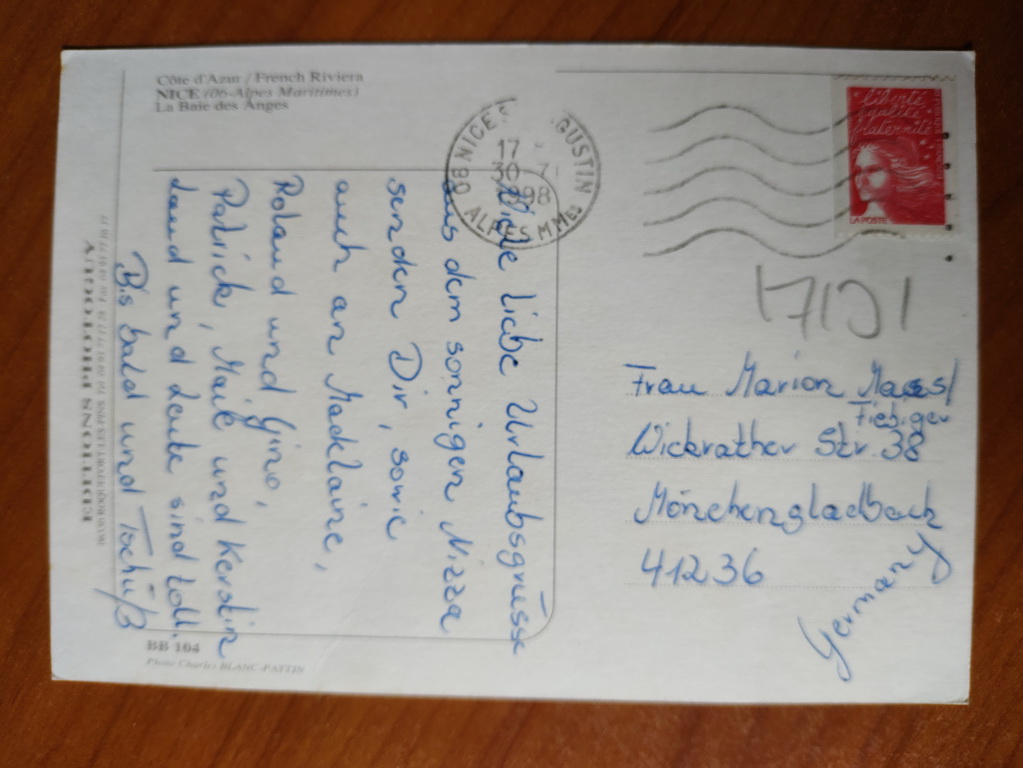 Côte d'Azur / French Riviera
NICE (06-Alpes Maritimes)
La Baie des Anges
Viele liebe Urlaubsgrüsse
aus dem sonnigen Nizza
senden Dir, sowie
auch an Madklaine,
Roland und Gino,
Patrick, Maik und Kerstin
Land und Leute sind toll.
Bis bald und Tschüß
BB 104
Photo Charles BLANC-PATTIN
06 NICE GUSTIN
17
30-7
1998
ALPES MMES
liberté
égalité
fraternité
LA POSTE
17101
Frau Marion Maess/
Fiebiger
Wickrather Str. 38
Mönchengladbach
41236
Germany